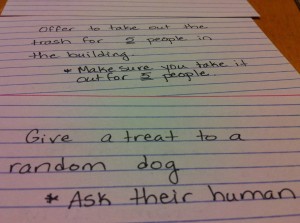 Offer to take out the
trash for 2 people in
the building
* Make sure you take it
out for 2 people.
Give a treat to a
random dog
* Ask their human